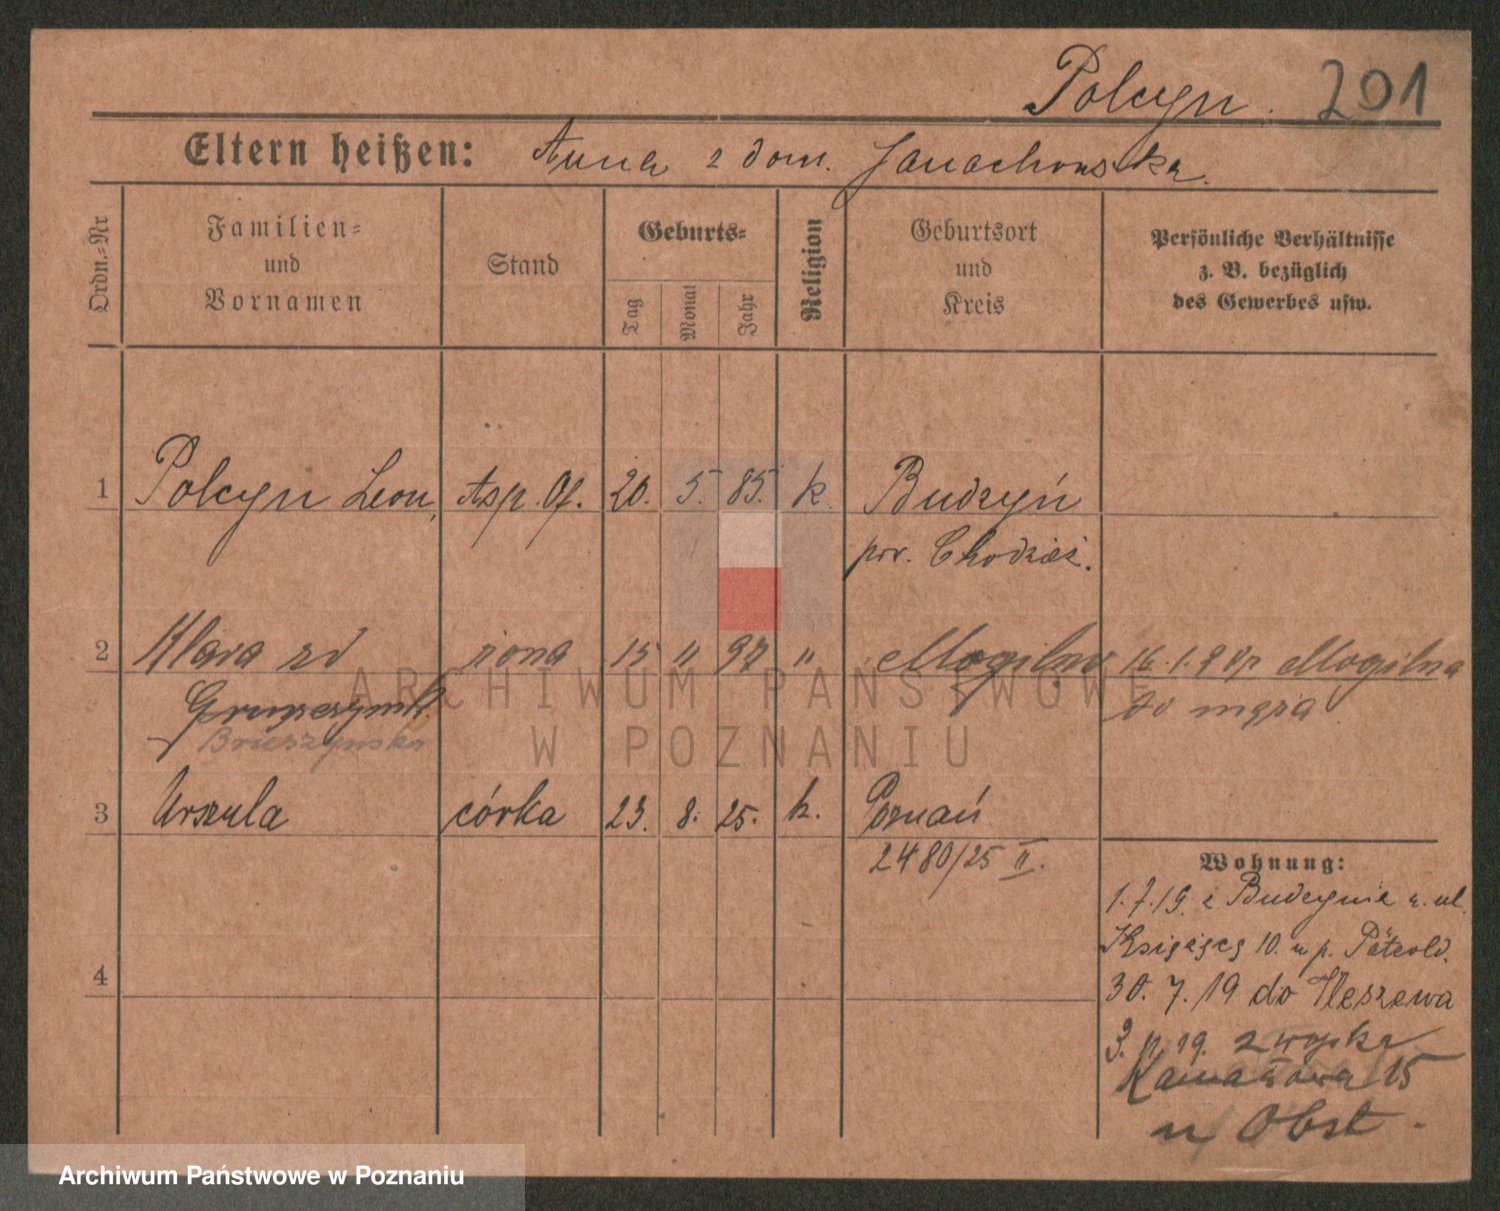 Polcyn. 201
Eltern heißen: Anna z dom. Janachowska.
Ordn.=Nr
Familien=
und
Vornamen
Stand
Geburts=
Tag
Monat
Jahr
Religion
Geburtsort
und
Kreis
Persönliche Verhältnisse
z. B. bezüglich
des Gewerbes usw.
1 Polcyn Leon, Asp. Of. 20. 5. 85. k. Budzyń
pow. Chodzież.
2 Klara zd żona 15 " 97 " Mogilno 16.1. Mogilna
do męża
3 Urszula córka 23. 8. 25. k. Poznań
2480/25 II.
Wohnung:
1.7.19. z Budzynia u. ul.
Książęcą 10. u p.
4
30. 7. 19 do Pleszewa
3. 19. z wojska
15
u Obst.
ARCHIWUM PAŃSTWOWE
W POZNANIU
Archiwum Państwowe w Poznaniu